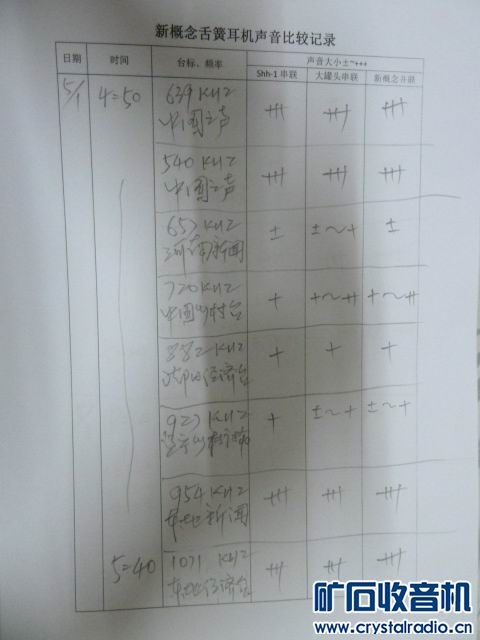 新概念舌簧耳机声音比较记录
日期 时间 台标、频率 声音大小±~+++
Shh-1 串联 大罐头串联 新概念并联
5/1 4=50 639 KHZ 中国之声 +++ +++ +++
540 KHZ 中国之声 +++ +++ +++
657 KHZ 河南新闻 ± ±~+ ±
720 KHZ 中国乡村台 + +~++ +~++
882 KHZ 经济台 + + +
927 KHZ + ±~+ ±~+
954 KHZ 本地新闻 +++ +++ +++
5=40 1071 KHZ 本地经济台 +++ +++ +++
矿石收音机
www.crystalradio.cn